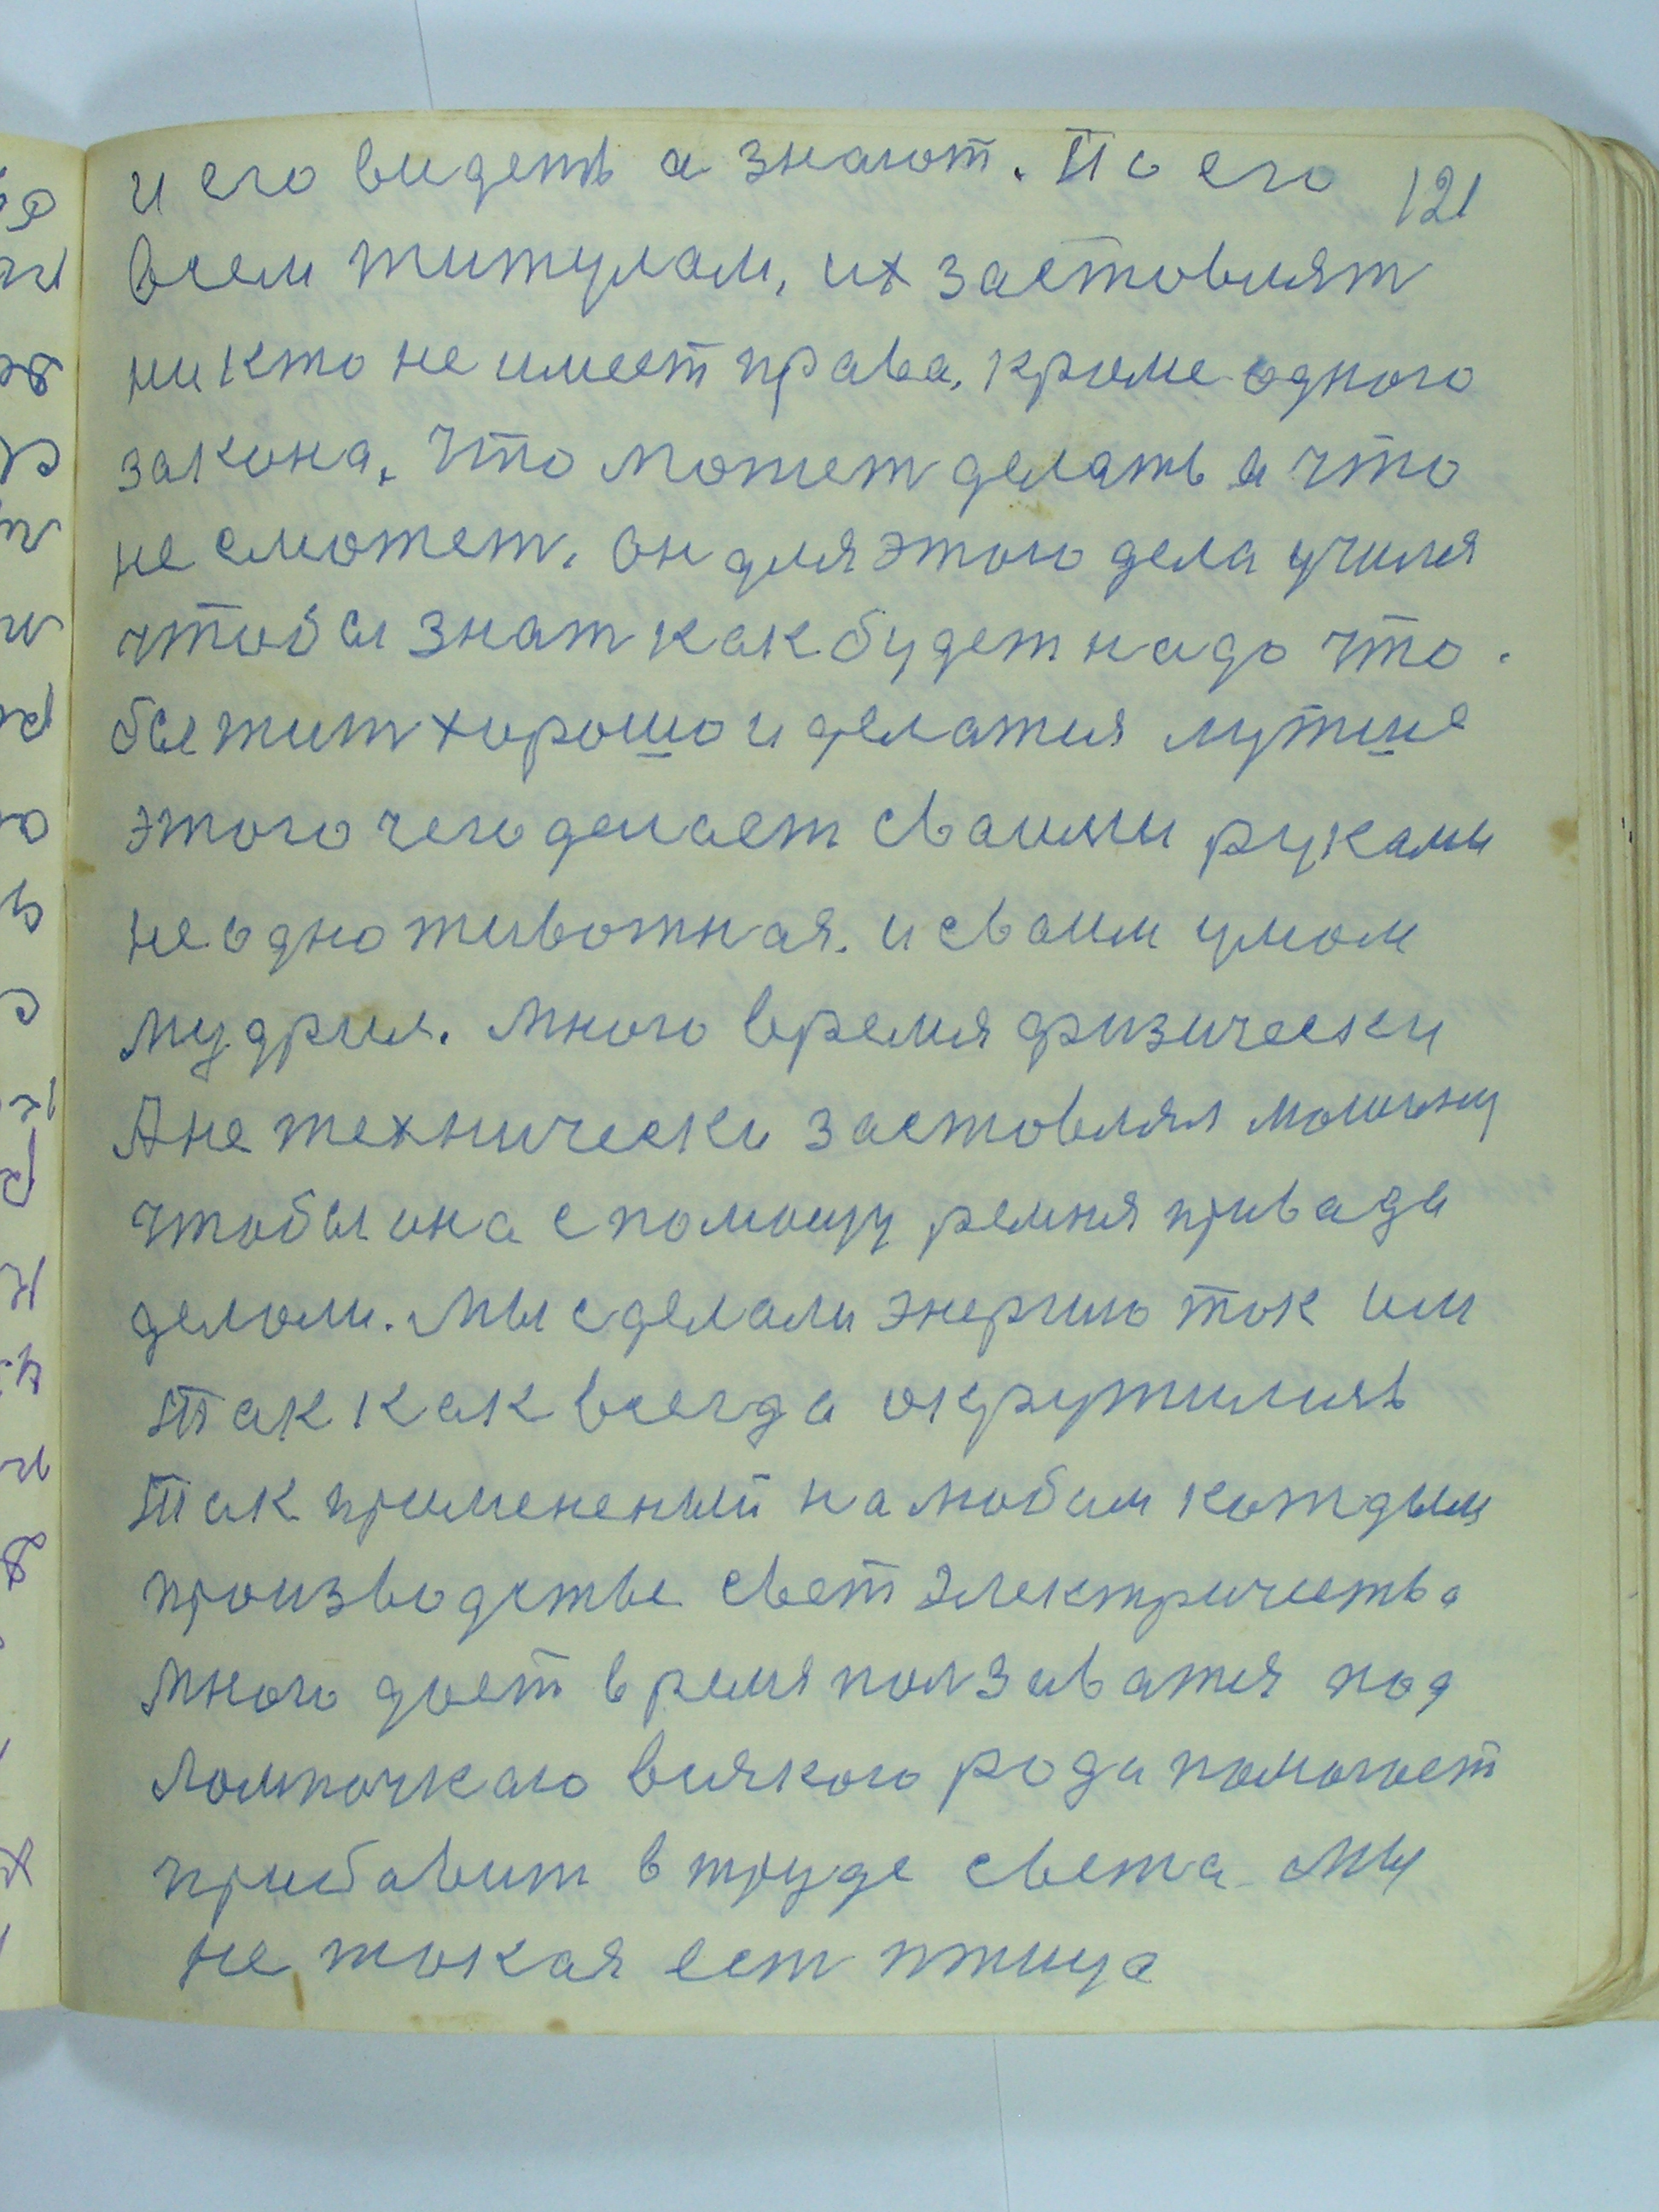 и его видеть а знают. По его 121
всем титулам, их застовлят
ни кто не имеет права, кроме одного
закона. Что может делать а что
не сможет. Он для этого дела учился
чтобы знат как будет надо что.
бы жит хорошо и делатся лутше
этого чего делает сваими руками
не одно животная. и сваим умом
мудрил. Много время физически
А не технически застовлял машину
чтобы она с помощу ремня привада
делоли. Мы сделали энергию ток им
Так как всегда окружились
Так применений на любом кождым
производстве свет электричества
много дает время ползаватся под
Ломпочкаю всякого рода помогает
прибавит в труде света Мы
не токая ест птица